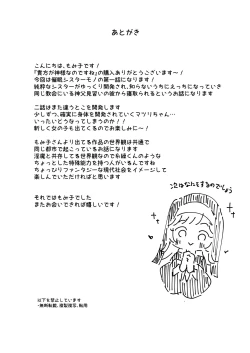 あとがき
こんにちは、もみ子です!
『貴方が神様なのですね』の購入ありがとうございます~!
今回は催眠シスターモノの第一話になります!
純粋なシスターがゆっくり開発され、知らないうちにえっちになっていき
同じ教会にいる神父見習いの彼から寝取られるというお話になります
二話はまた違うとこを開発します
少しずつ、確実に身体を開発されていくマツリちゃん…
いったいどうなってしまうのか!!
新しく女の子も出てくるのでお楽しみに~!
もみ子さんより出てる作品の世界観は共通で
同じ都市で起こっているお話になります
淫魔と共存してる世界観なので糸緒くんのような
ちょっとした特殊能力を持つ人がいるのです
ちょっぴりファンタジーな現代社会をイメージして
楽しんでいただければと思います
それではもみ子でした
またお会いできれば嬉しいです!
次はなにをするのでしょう
以下を禁止しています
・無断転載、複製複写、転用